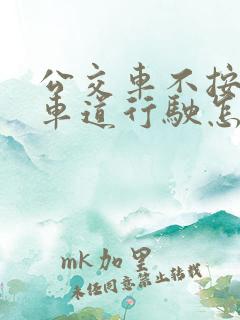 公交車不按
車道行駛怎
mk加里
未经同意禁止转载